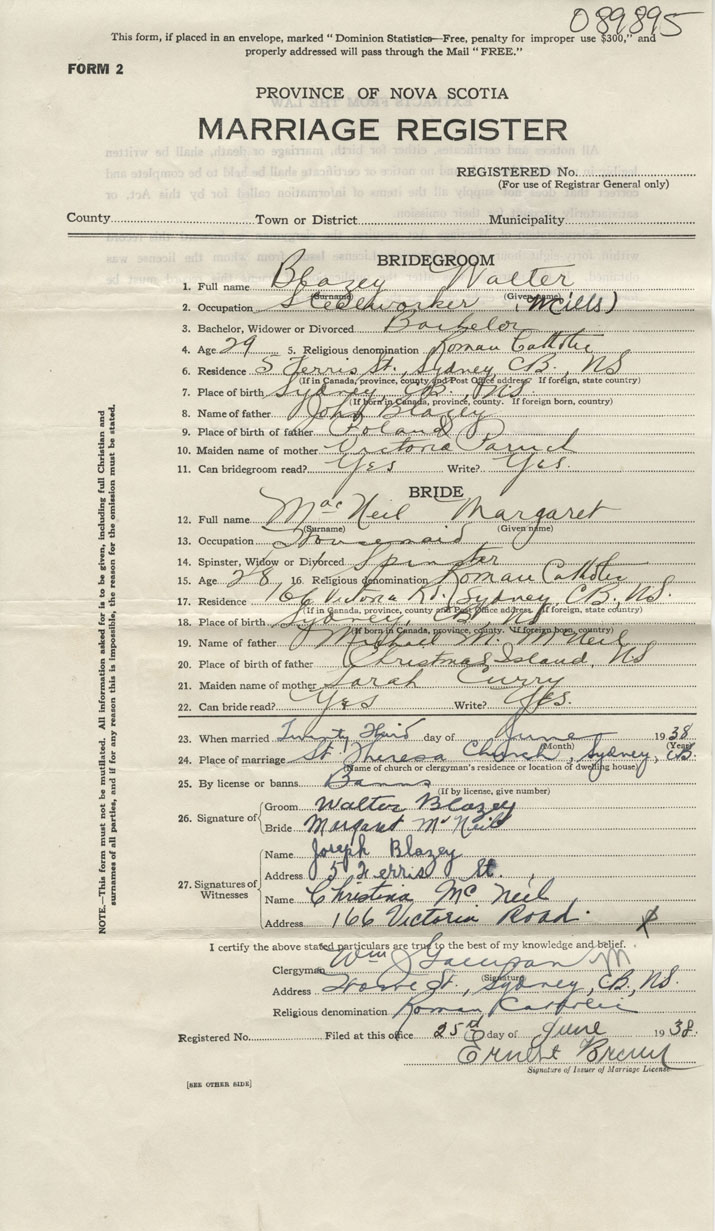 089895
This form, if placed in an envelope, marked "Dominion Statistics—Free, penalty for improper use $300," and
properly addressed will pass through the Mail "FREE."
FORM 2
PROVINCE OF NOVA SCOTIA
MARRIAGE REGISTER
REGISTERED No.
(For use of Registrar General only)
County Town or District Municipality
BRIDEGROOM
1. Full name Blazey Walter
(Surname) (Given name)
2. Occupation Steelworker (Mills)
3. Bachelor, Widower or Divorced Bachelor
4. Age 29 5. Religious denomination Roman Catholic
6. Residence 5 Ferris St., Sydney, CB., NS
(If in Canada, province, county and Post Office address. If foreign, state country)
7. Place of birth Sydney, CB., NS.
(If born in Canada, province, county. If foreign born, country)
8. Name of father John Blazey
9. Place of birth of father Poland
10. Maiden name of mother Victoria
11. Can bridegroom read? Yes Write? Yes.
BRIDE
12. Full name MacNeil Margaret
(Surname) (Given name)
13. Occupation Housemaid
14. Spinster, Widow or Divorced Spinster
15. Age 28 16. Religious denomination Roman Catholic
17. Residence 166 Victoria Rd. Sydney, CB., NS.
(If in Canada, province, county and Post Office address. If foreign, state country)
18. Place of birth Sydney, CB., NS
(If born in Canada, province, county. If foreign born, country)
19. Name of father Michael M. McNeil
20. Place of birth of father Christmas Island, NS
21. Maiden name of mother Sarah Curry
22. Can bride read? Yes Write? Yes.
23. When married Twenty Third day of June 1938
(Month) (Year)
24. Place of marriage St. Theresa Church, Sydney, CB.
(Name of church or clergyman's residence or location of dwelling house)
25. By license or banns Banns
(If by license, give number)
26. Signature of Groom Walter Blazey
Bride Margaret McNeil
27. Signatures of Witnesses
Name Joseph Blazey
Address 5 Ferris St.
Name Christina McNeil
Address 166 Victoria Road.
I certify the above stated particulars are true to the best of my knowledge and belief.
Clergyman Wm J
(Signature)
Address St., Sydney, CB., NS.
Religious denomination Roman Catholic
Registered No. Filed at this office 25 day of June 1938.
Ernest
Signature of Issuer of Marriage License
[SEE OTHER SIDE]
NOTE.—This form must not be mutilated. All information asked for is to be given, including full Christian and
surnames of all parties, and if for any reason this is impossible, the reason for the omission must be stated.